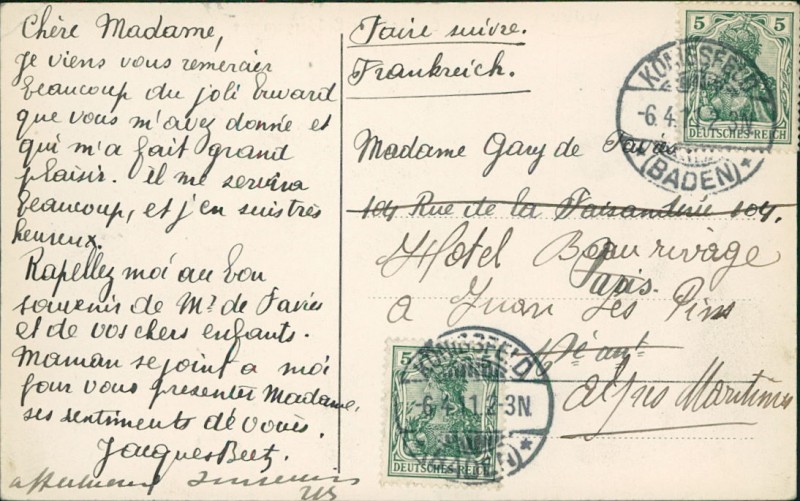 Chère Madame,
Je viens vous remercier
beaucoup du joli buvard
que vous m'avez donné et
qui m'a fait grand
plaisir. il me servira
beaucoup, et j'en suis très
heureux.
Rapellez moi au bon
souvenir de Mr de Favies
et de vos chers enfants.
Maman se joint a moi
pour vous presenter Madame,
ses sentiments dévoués.
Jacques
souvenir
Faire suivre.
Frankreich.
Madame Gary de
104 Rue de la Faisanderie 104.
Paris.
Hôtel Beau rivage
a Juan Les Pins
Alpes Maritimes
5 5
DEUTSCHES REICH
KÖNIGSFELD
-6.4.11.2-3N.
*(BADEN)*
5
DEUTSCHES REICH
KÖNIGSFELD
-6.4.11.2-3N.